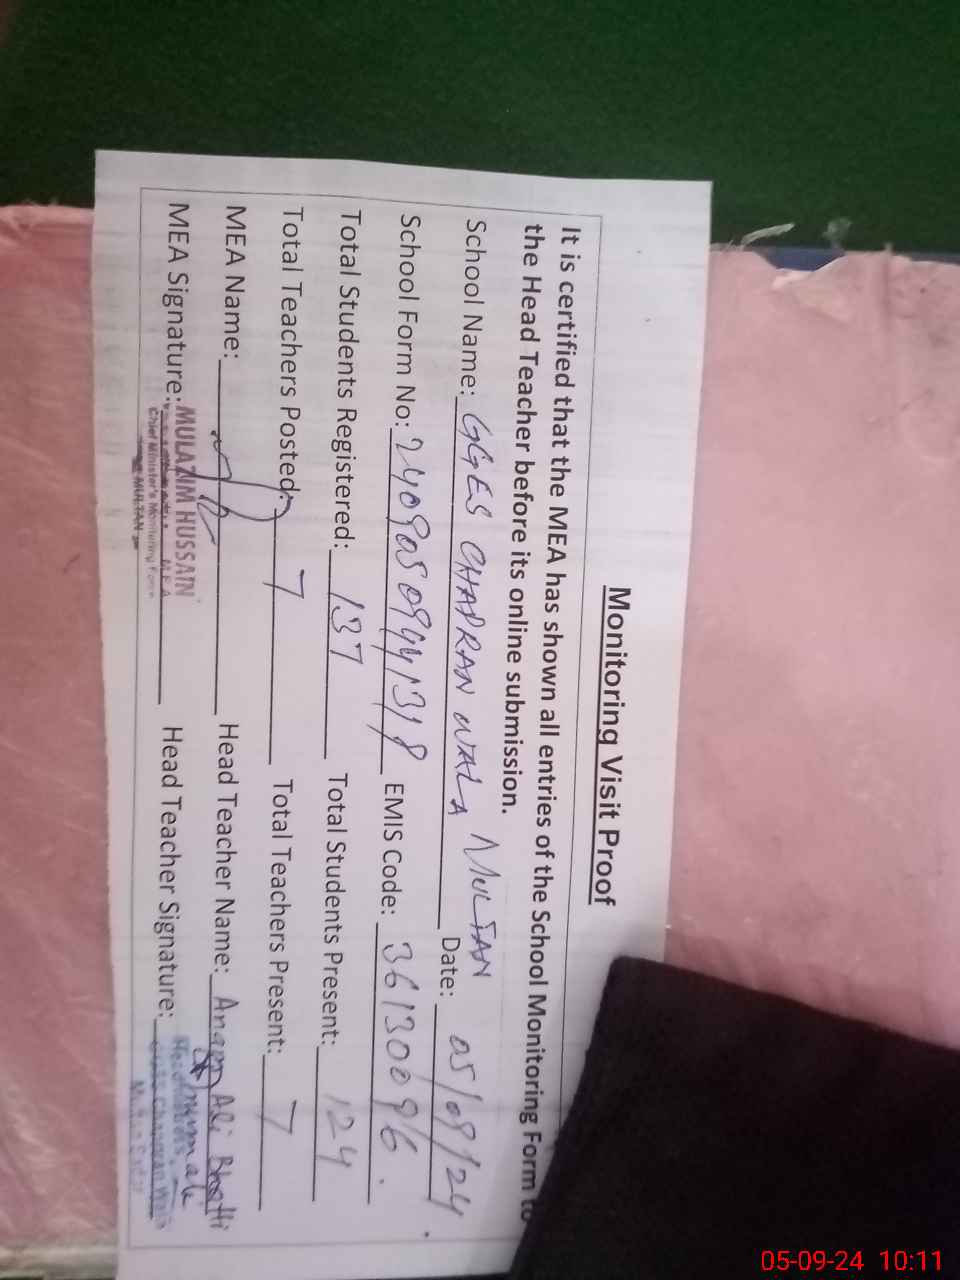 Monitoring Visit Proof
It is certified that the MEA has shown all entries of the School Monitoring Form to
the Head Teacher before its online submission.
School Name: GGES CHADRAN WALA MULTAN Date: 05/09/24.
School Form No: EMIS Code: 36130096.
Total Students Registered: 137 Total Students Present: 124
Total Teachers Posted: 7 Total Teachers Present: 7
MEA Name: Head Teacher Name: Anam Ali Bhatti
MEA Signature: MULAZIM HUSSAIN Head Teacher Signature:
M.E.A
Chief Minister's Monitoring Force
MULTAN
05-09-24 10:11